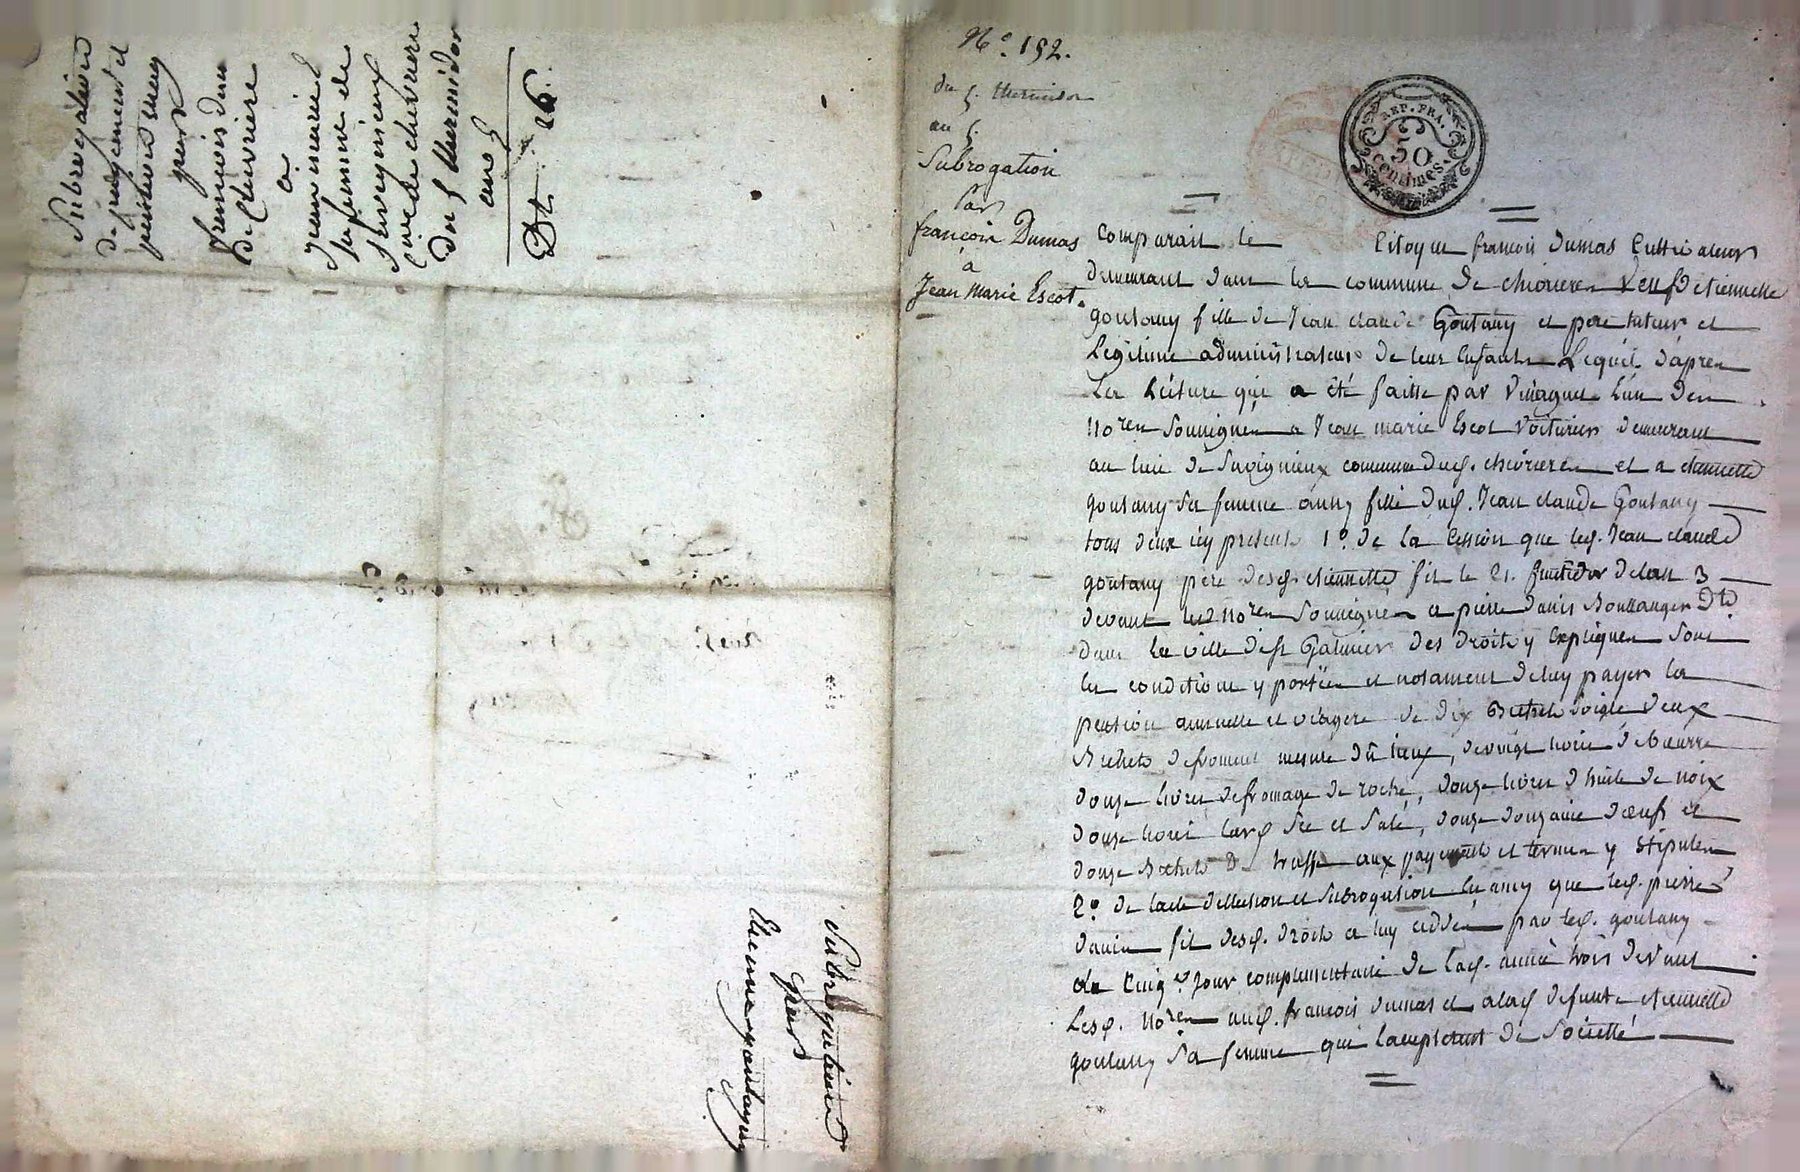 Subrogation
de jugement et
pension
pour
françois dumas
de Chevriere
a
jean marie
sa femme de
Savignieux
Cne de chevriere
du 5 thermidor
an 5
Dt 26
Subrogation
pour
Etienne goutagny
No. 192.
du 5. thermidor
an 5.
Subrogation
Par
françois Dumas
à
Jean Marie Escot.
REP. FRA.
50
centimes.
Comparait le Citoyen françois dumas Cultivateur
demeurant dans la commune de chevrieres Veuf detiennette
goutany fille de Jean claude Goutany et pere tuteur et
Legitime administrateur de leur Enfants Lequel d'apres
La lecture qui a été faitte par l'un des
Nores Soussignés a Jean marie Escot Voiturier demeurant
au lieu de Savignieux commune dud. chevrieres et a etiennette
goutany sa femme aussy fille dud. Jean claude Goutany
tous deux icy presents 1o. de la Cession que led. Jean claude
goutany pere desd. etiennette fit le 21. fructidor de lan 3
devant les Nores Soussignés a pierre Danis Boullanger dt
dans la ville de st Galmier des droits y Expliques Sous
les conditions y portées et notament de luy payer la
pention annuelle et viagere de dix Bichets soigle deux
Bichets de froment mesure du lieux, de vingt livres de boeurre
douze livres de fromage de roche, douze livres d'huile de noix
douze livres lard Sec et Salé, douze douzaine d'oeufs et
douze Bichets de truffe aux payements et termes y Stipulés
2o. de lacte de Cession et Subrogation en que led. pierre
danis fit desd. droits a luy ceddés par led. goutany
le Cinqe. jour complementaire de lad. année trois devant
Lesd. Nores aud. françois dumas et alad. defunte etiennette
goutany Sa femme qui lacepterent de Societté